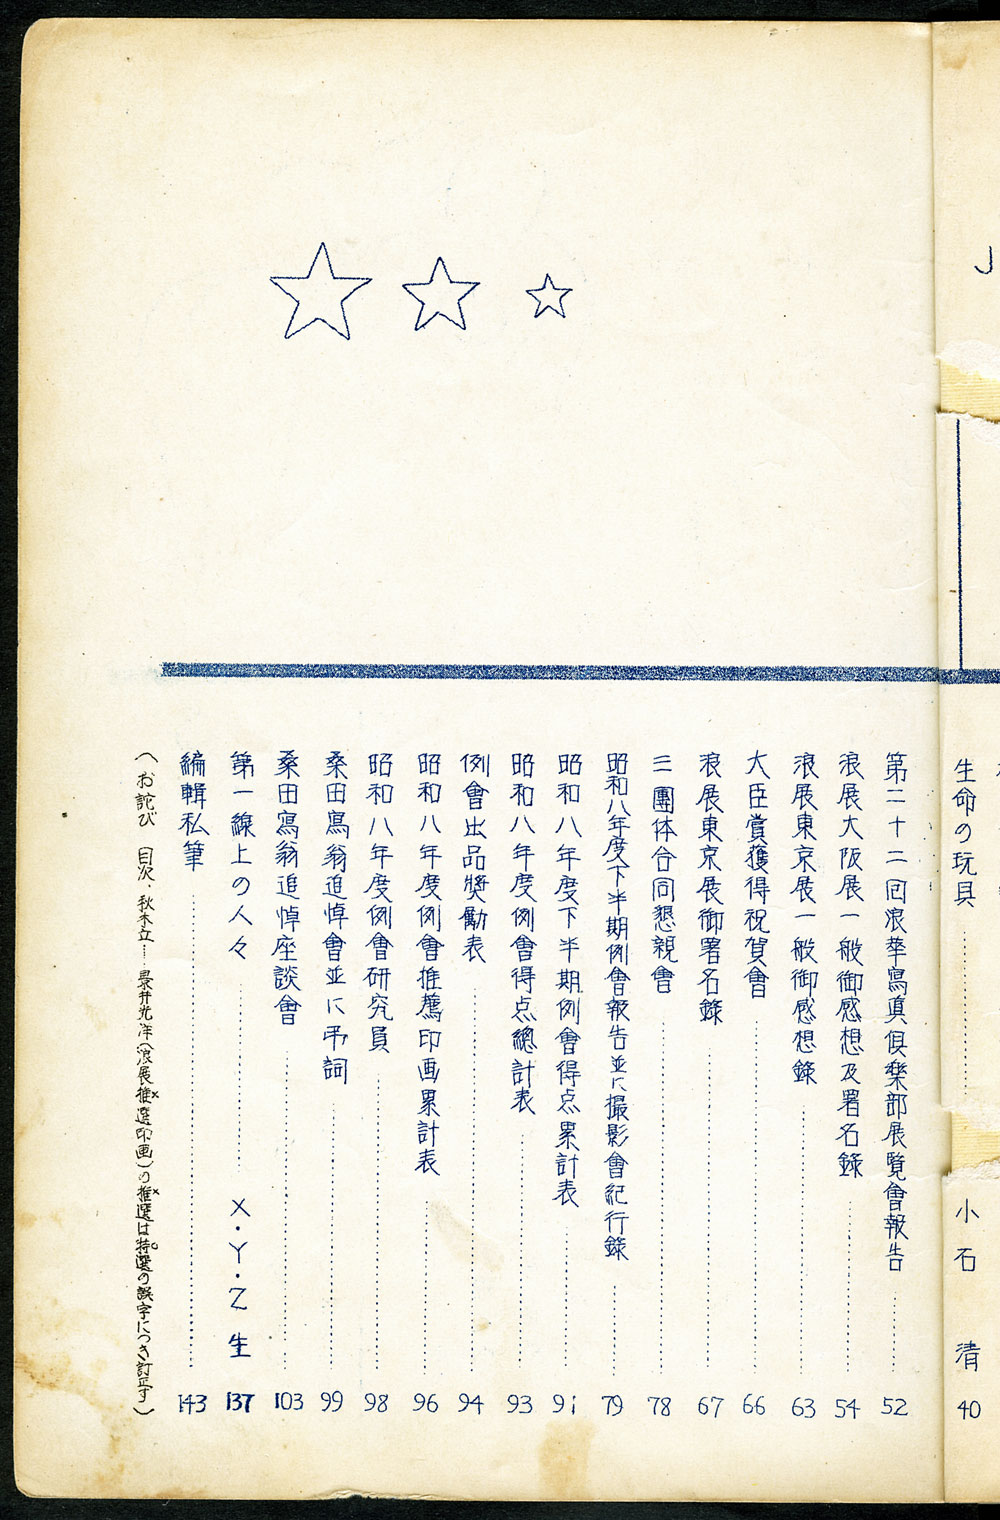 J
生命の玩具 小石 清 40
第二十二回浪華寫真倶樂部展覽會報告 52
浪展大阪展一般御感想及署名錄 54
浪展東京展一般御感想錄 63
大臣賞獲得祝賀會 66
浪展東京展御署名錄 67
三團体合同懇親會 78
昭和八年度下半期例會報告並に撮影會紀行錄 79
昭和八年度下半期例會得点累計表 91
昭和八年度例會得点總計表 93
例會出品獎勵表 94
昭和八年度例會推薦印画累計表 96
昭和八年度例會研究員 98
桑田寫翁追悼會並に弔詞 99
桑田寫翁追悼座談會 103
第一線上の人々 X・Y・Z生 137
編輯私筆 143
(お詫び 目次、秋木立……長井光洋(浪展推選印画)の推選は特選の誤字につき訂正す)